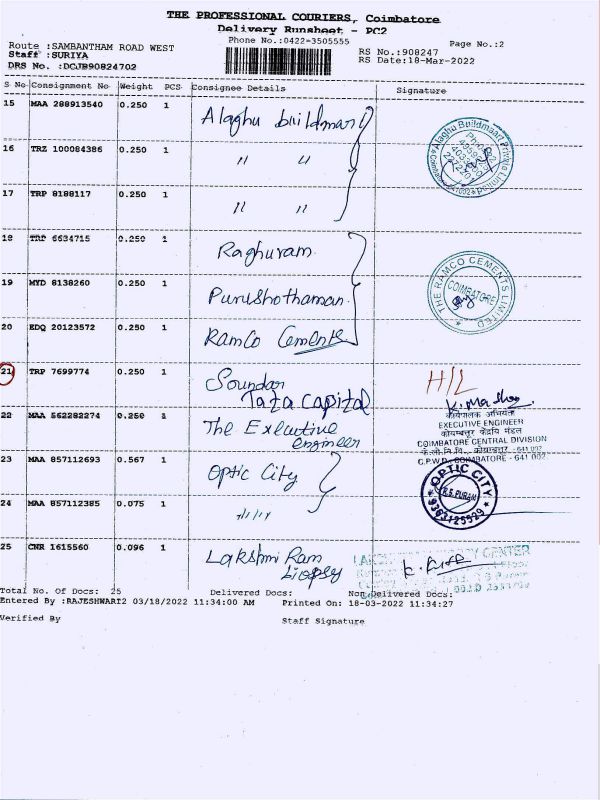 THE PROFESSIONAL COURIERS, Coimbatore
Delivery Runsheet - PC2
Phone No.:0422-3505555
Page No.:2
Route :SAMBANTHAM ROAD WEST
Staff :SURIYA
RS No.:908247
DRS No. :DCJB90824702
RS Date:18-Mar-2022
S No Consignment No Weight PCS Consignee Details Signature
15 MAA 288913540 0.250 1 Alaghu buildman
16 TRZ 100084386 0.250 1 " "
17 TRP 8188117 0.250 1 " "
18 TRP 6634715 0.250 1 Raghuram
THE RAMCO CEMENTS LIMITED
COIMBATORE
19 MYD 8138260 0.250 1 Purushothaman
20 EDQ 20123572 0.250 1 Ramco Cements
21 TRP 7699774 0.250 1 Soundar
Tata Capital
H/L
22 MAA 562282274 0.250 1 The Executive
engineer
कार्यपालक अभियंता
EXECUTIVE ENGINEER
कोयम्बत्तूर केंद्रीय मंडल
COIMBATORE CENTRAL DIVISION
C.P.W.D., COIMBATORE - 641 002
23 MAA 857112693 0.567 1 Optic City
OPTIC CITY
R.S. PURAM
24 MAA 857112385 0.075 1 "
25 CNR 1615560 0.096 1 Lakshmi Ram
biopsy
CENTER
Total No. Of Docs: 25 Delivered Docs: Non Delivered Docs:
Entered By :RAJESHWARI2 03/18/2022 11:34:00 AM Printed On: 18-03-2022 11:34:27
Verified By Staff Signature